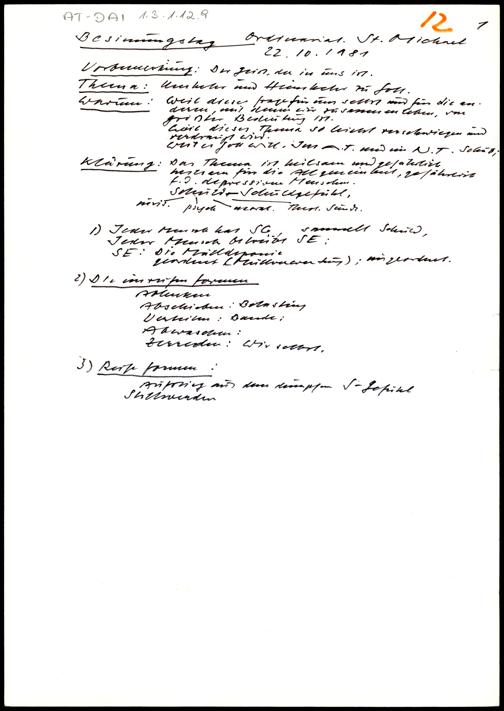 AT-DAI 1.3.1.12.9
12
1
Besinnungstag Ordinariat. St. Michael
22.10.1981
Vorbemerkung: Der Geist, der in uns ist.
Thema: Umkehr und Heimkehr zu Gott.
Warum: Weil diese Frage für uns selbst und für die an-
deren, mit denen wir zusammenleben, von
größter Bedeutung ist.
Weil dieses Thema so leicht verschwiegen und
verdrängt wird.
Weil es Gott will. Im A.T. und im N.T.
Klärung: Das Thema ist heilsam und gefährlich
heilsam für die Allgemeinheit, gefährlich
f.d. depressiven Menschen.
Schuld - Schuldgefühl,
psych moral. theol.
1) Jeder Mensch hat SG, sammelt Schuld,
Jeder Mensch betreibt SE:
SE: Die Mülldeponie
geordnet (Müllverwertung); ungeordnet.
2) Die unreifen Formen
Ablenken
Abschieben: Belastung
Verteilen: Bande:
Abwaschen:
Zerreden: Wir selbst.
3) Reife Formen:
Aufstieg aus dem dumpfen S-Gefühl
Stillwerden